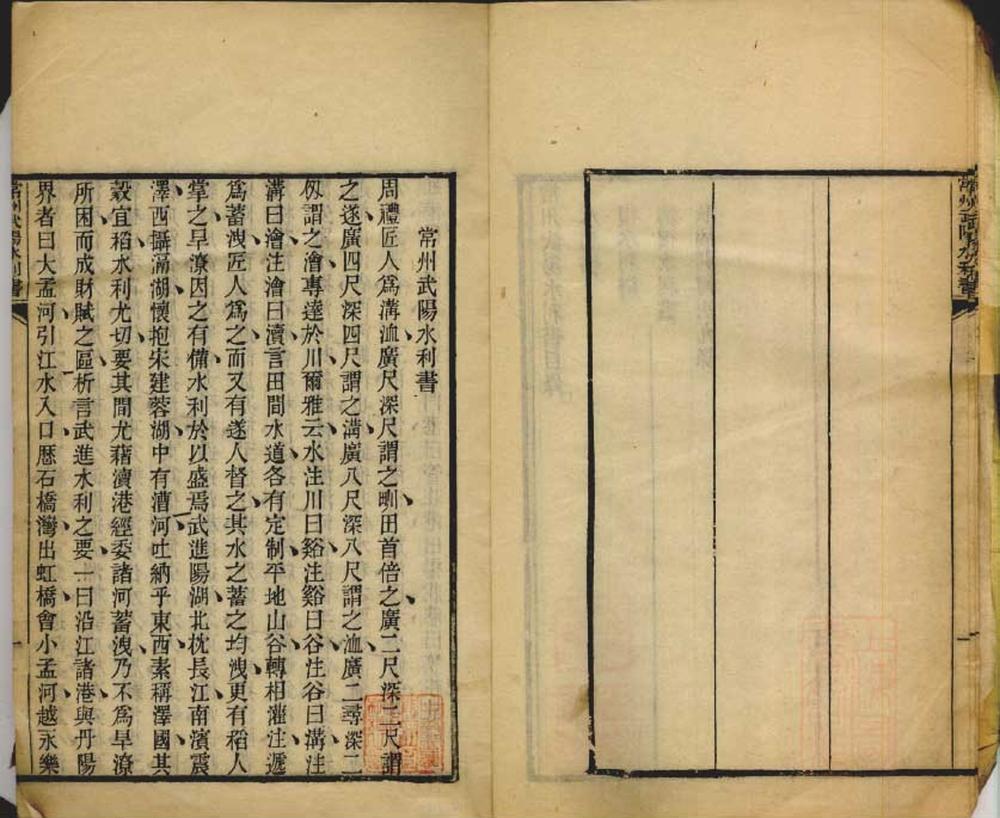 常州武陽水利書
常州武陽水利書
周禮匠人爲溝洫廣尺深尺謂之甽田首倍之廣二尺深二尺謂
之遂廣四尺深四尺謂之溝廣八尺深八尺謂之洫廣二尋深二
仭謂之澮專達於川爾雅云水注川曰谿注谿曰谷注谷曰溝注
溝曰澮注澮曰瀆言田間水道各有定制平地山谷轉相灌注遞
爲蓄洩匠人爲之而又有遂人督之其水之蓄之均洩更有稻人
掌之旱潦因之有備水利於以盛焉武進陽湖北枕長江南濱震
澤西攝滆湖懷抱宋建蓉湖中有漕河吐納乎東西素稱澤國其
穀宜稻水利尤切要其間尤藉瀆港經委諸河蓄洩乃不爲旱潦
所困而成財賦之區析言武進水利之要一曰沿江諸港與丹陽
界者曰大孟河引江水入口歷石橋灣出虹橋會小孟河越永樂
常州武陽水利書
一